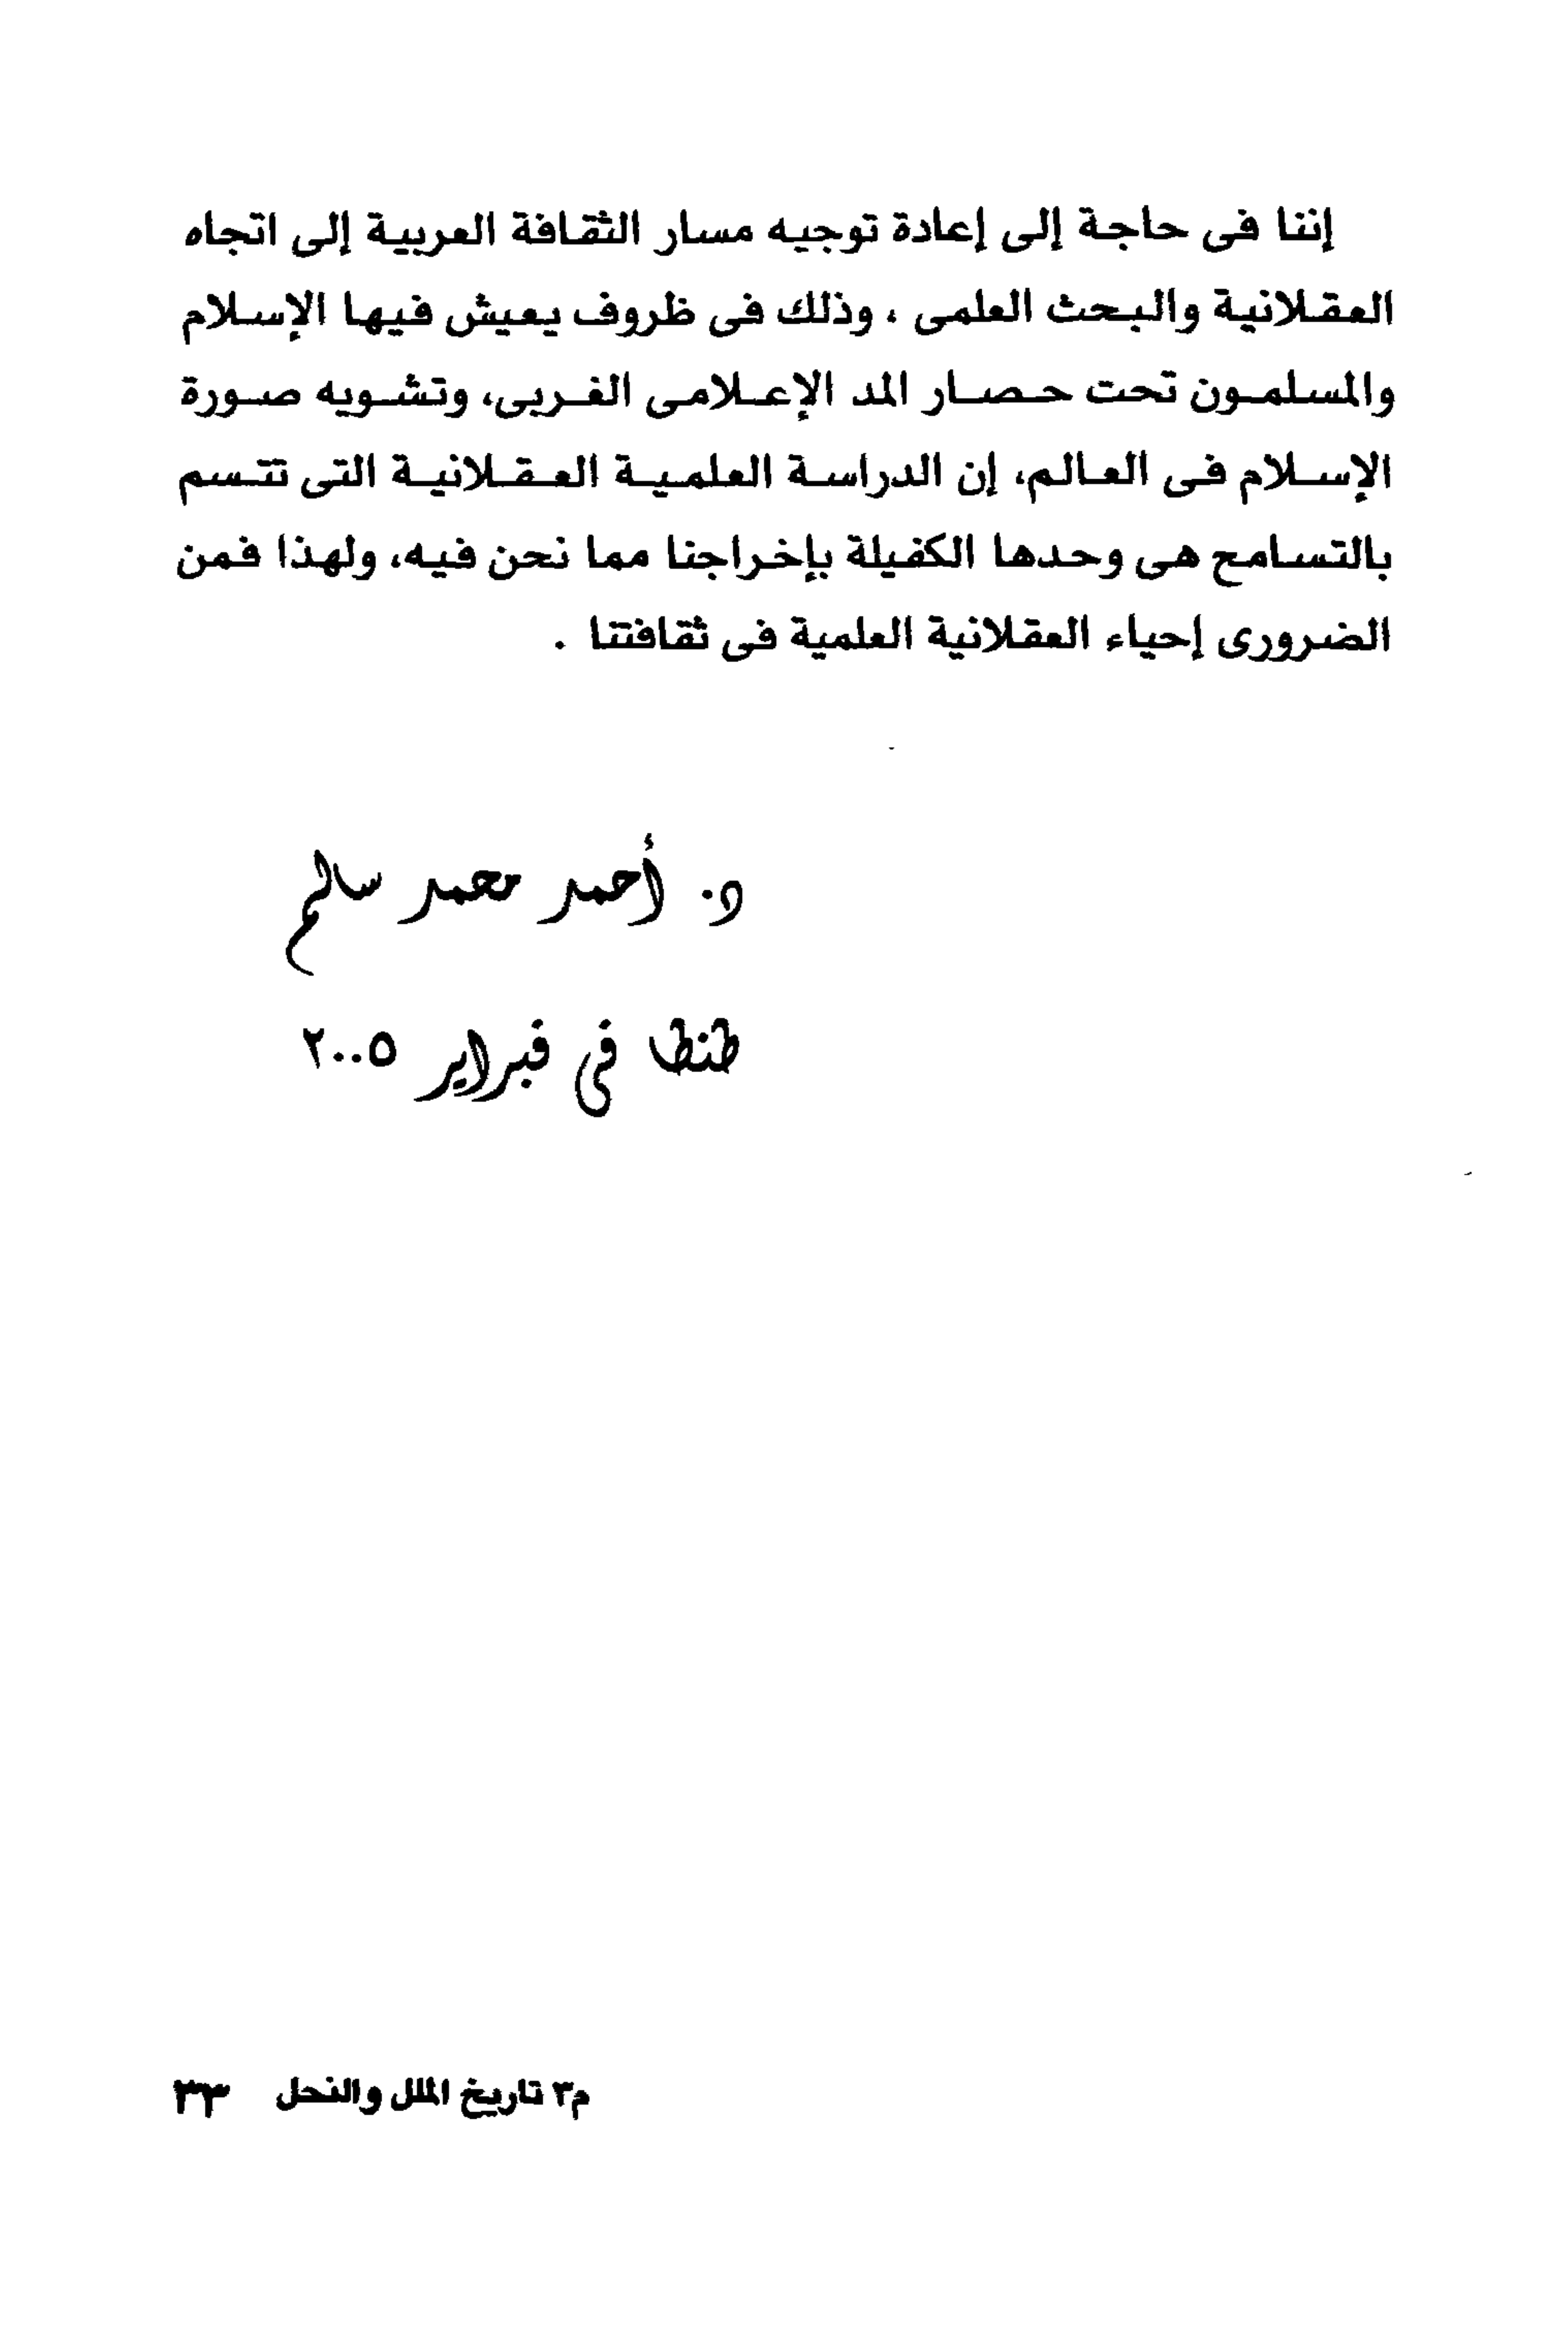 إننا فى حاجة إلى إعادة توجيه مسار الثقافة العربية إلى اتجاه
العقلانية والبحث العلمى ، وذلك فى ظروف يعيش فيها الإسلام
والمسلمون تحت حصار المد الإعلامى الغربى، وتشويه صورة
الإسلام فى العالم، إن الدراسة العلمية العقلانية التى تتسم
بالتسامح هى وحدها الكفيلة بإخراجنا مما نحن فيه، ولهذا فمن
الضرورى إحياء العقلانية العلمية فى ثقافتنا .
د. أحمد محمد سالم
طنطا في فبراير ٢٠٠٥
م٣ تاريخ الملل والنحل ٣٣